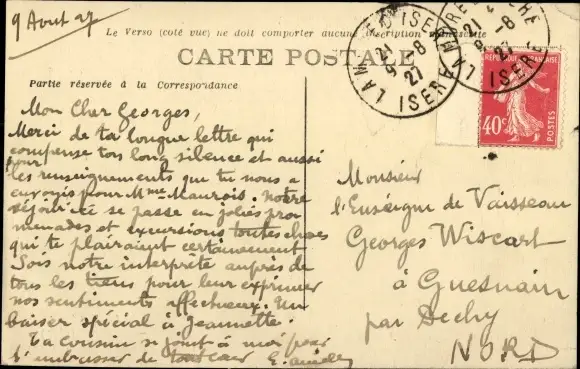 9 Aout 27
Le Verso (coté vue) ne doit comporter aucune inscription manuscrite
CARTE POSTALE
Partie réservée à la Correspondance
Mon Cher Georges,
Merci de ta longue lettre qui
compense ton long silence et aussi
pour
les renseignements que tu nous a
envoyés pour Mme Maurois. Notre
séjour ici se passe en jolies pro
menades et excursions toutes choses
qui te plairaient certainement
Sois notre interprète auprès de
tous les tiens pour leur exprimer
nos sentiments affectueux. Un
baiser spécial à Jeannette.
Ta cousine se joint à moi pour
t'embrasser de tout cœur
Monsieur
l'Enseigne de Vaisseau
Georges Wiscart
à Guesnain
par Dechy
NORD
LA MURE
ISERE
21
9-8
27
LA MURE
ISERE
21
9-8
27
REPUBLIQUE FRANÇAISE
40c
POSTES